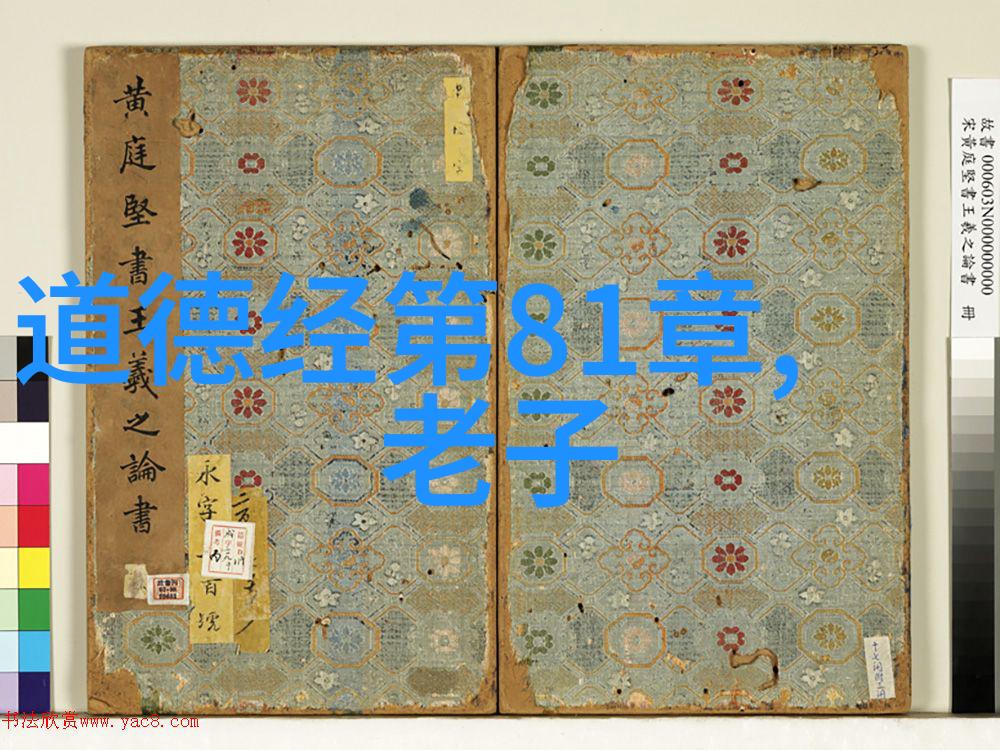 黄庭堅書王羲之論書
永字 百號
道德经第81章,
老子
故書 000603N000000000
宋黄庭堅書王羲之論書 冊
书法欣赏www.yac8.com